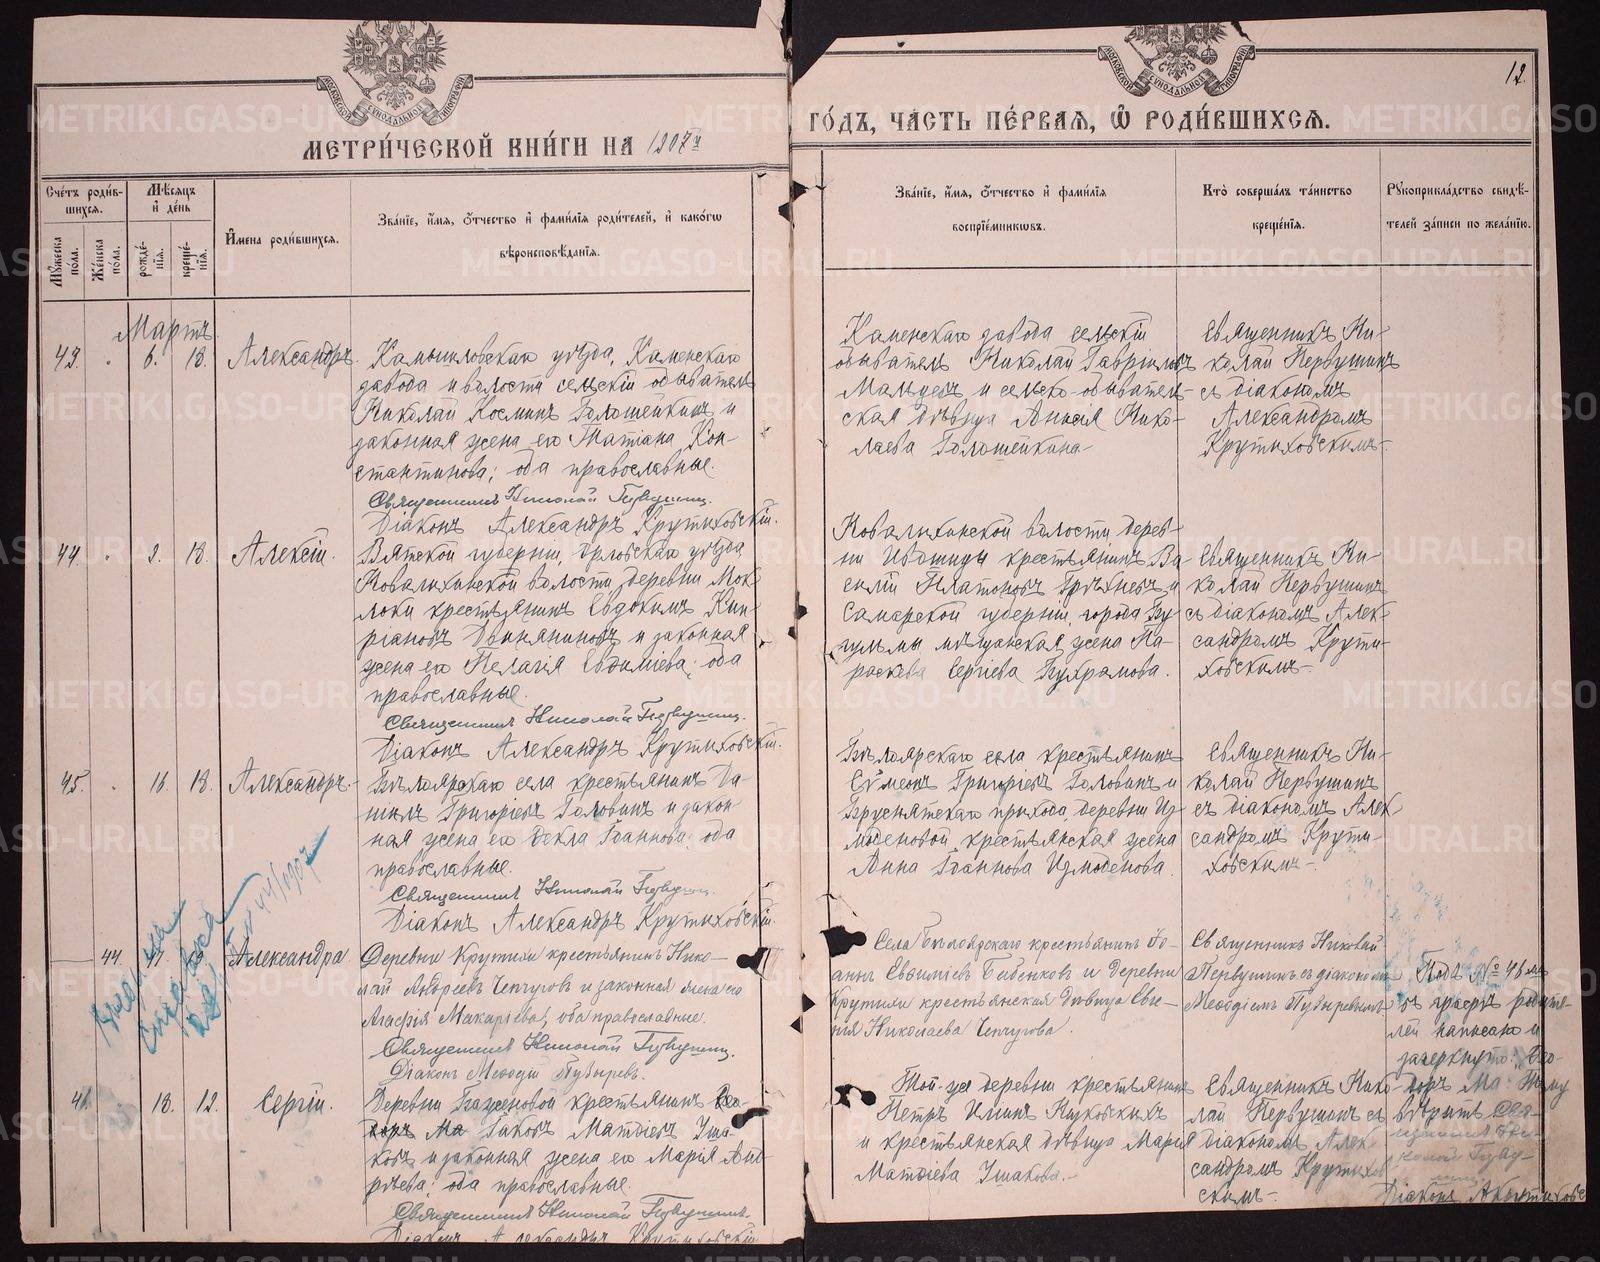 МЕТРИ́ЧЕСКОЙ КНИ́ГИ НА 1907й
ГО́ДЪ, ЧА́СТЬ ПЕ́РВАѦ, Ѿ РОДИ́ВШИХСѦ.
12
Сче́тъ роди́в-
шихсѧ.
Мѣ́сѧцъ
и҆ де́нь
Мꙋ́жеска по́ла.
Же́нска по́ла.
рожде́-
нїѧ.
креще́-
нїѧ.
И҆мена̀ роди́вшихсѧ.
Зва́нїе, и҆́мѧ, ѻ҆́тчество и҆ фами́лїѧ роди́телей, и҆ како́гѡ
вѣроисповѣ́данїѧ.
Зва́нїе, и҆́мѧ, ѻ҆́тчество и҆ фами́лїѧ
воспрїе́мникѡвъ.
Кто̀ соверша́лъ та́инство
креще́нїѧ.
Рꙋкоприкла́дство свидѣ́-
телей за́писи по жела́нїю.
Мартъ
43. 6. 18. Александръ.
Камышловскаго уѣзда, Каменскаго
завода и волости сельскій обыватель
Николай Косминъ Голошейкинъ и
законная жена его Татіана Кон-
стантинова; оба православные.
Священникъ Николай Первушинъ.
Діаконъ Александръ Крутиховскій.
Каменскаго завода сельскій
обыватель Николай Гавріиловъ
и сельско-обыватель-
ская дѣвица Анисія Нико-
лаева Голошейкина
Священникъ Ни-
колай Первушинъ
съ діакономъ
Александромъ
Крутиховскимъ.
44. 9. 18. Алексій.
Вятской губерніи, Орловскаго уѣзда
Ковалихинской волости, деревни Мок-
крестьянинъ Евдокимъ Кип-
ріановъ и законная
жена его Пелагія Евдоміева; оба
православные.
Священникъ Николай Первушинъ.
Діаконъ Александръ Крутиховскій.
волости, дерев-
ни крестьянинъ Ва-
силій Платоновъ и
Самарской губерніи, города Бу-
гульмы мѣщанская жена Па-
раскева Сергіева
Священникъ Ни-
колай Первушинъ
съ діакономъ Алек-
сандромъ Крути-
ховскимъ
45. 16. 18. Александръ.
Бѣлоярскаго села крестьянинъ Да-
ніилъ Григорьевъ Головинъ и закон-
ная жена его Ѳекла Іоаннова; оба
православные.
Священникъ Николай Первушинъ.
Діаконъ Александръ Крутиховскій
Бѣлоярскаго села крестьянинъ
Сѵмеонъ Григорьевъ Головинъ и
Бруснятскаго прихода, деревни Из-
моденовой крестьянская жена
Анна Іоаннова Измоденова.
Священникъ Ни-
колай Первушинъ
съ діакономъ Алек-
сандромъ Крути-
ховскимъ
44. Александра
Деревни Крутихи крестьянинъ Нико-
лай Андреевъ Чепчуговъ и законная жена его
Агафія Макаріева; оба православные.
Священникъ Николай Первушинъ.
Діаконъ Меѳодій Пузыревъ.
Села Бѣлоярскаго крестьянинъ Іо-
аннъ Евѳиміевъ Бабенковъ и деревни
Крутихи крестьянская дѣвица Евге-
нія Николаева Чепчугова.
Священникъ Николай
Первушинъ съ діакономъ
Меѳодіемъ Пузыревымъ
Подъ № 46мъ
въ графѣ родите-
лей написано и
зачеркнуто: „Ѳео-
доръ Ма“. Тому
вѣрить. Свя-
щенникъ Ни-
колай Перву-
шинъ.
46. 18. 19. Сергій.
Деревни Баженовой крестьянинъ Ѳео-
доръ Ма Іаковъ Матѳіевъ Уша-
ковъ и законная жена его Марія Анд-
реева; оба православные.
Священникъ Николай Первушинъ.
Діаконъ Александръ Крутиховскій
Той-же деревни крестьянинъ
Петръ Илiинъ
и крестьянская дѣвица Марія
Матѳіева Ушакова.
Священникъ Нико-
лай Первушинъ съ
діакономъ Алек-
сандромъ Крутихов-
скимъ